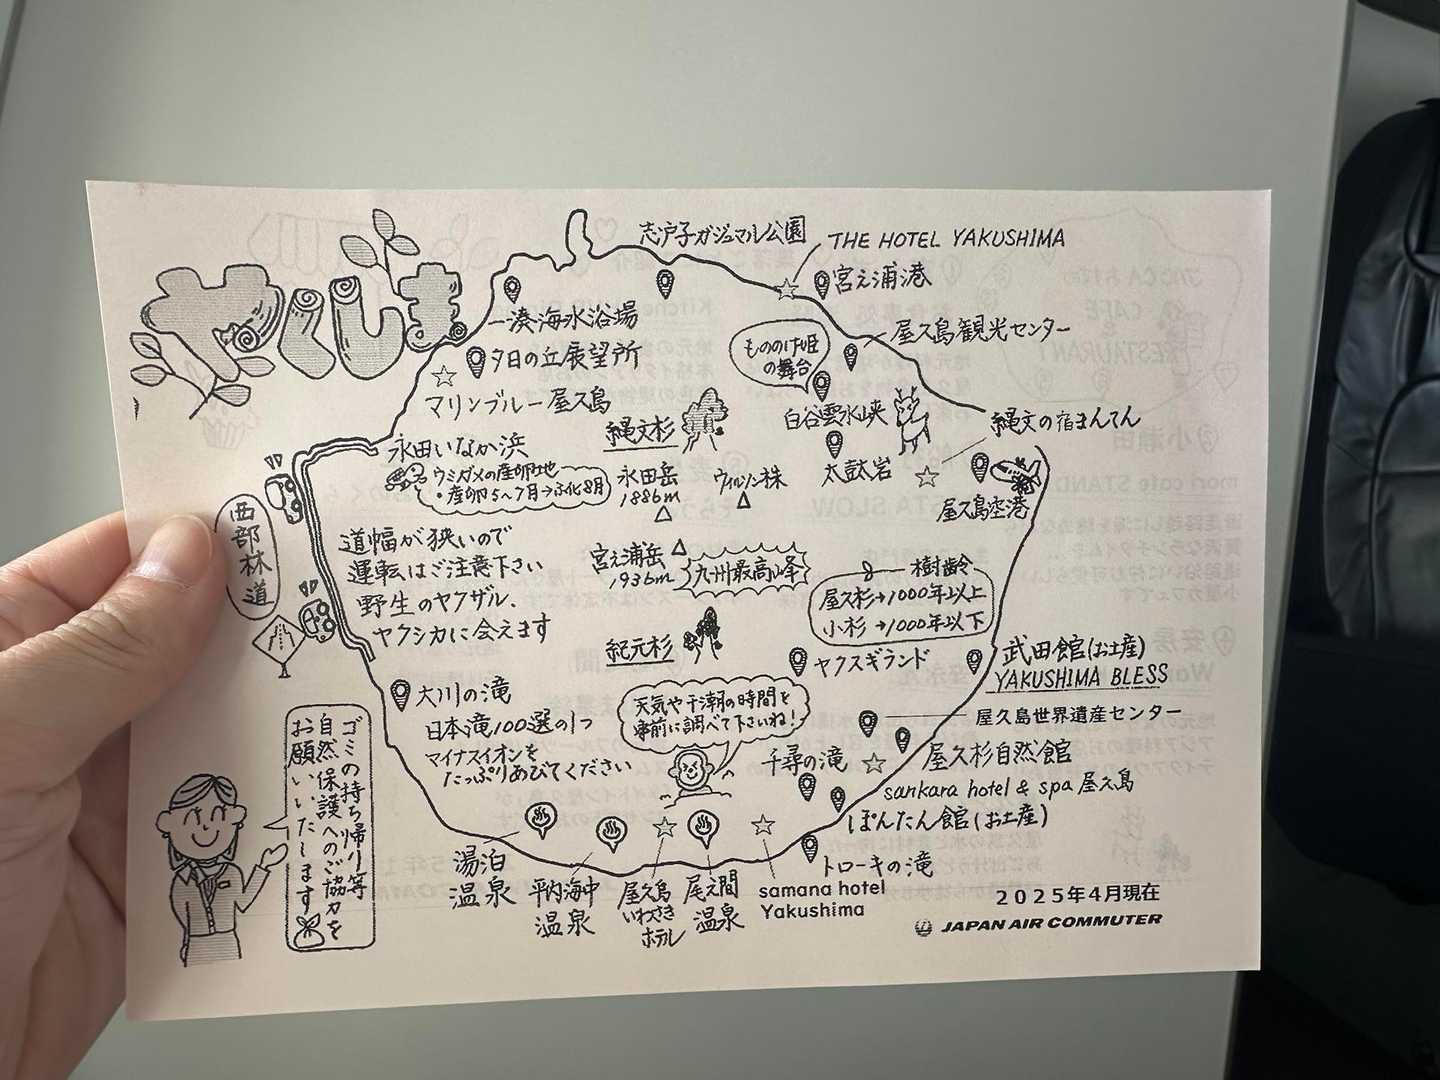 やくしま
志戸子ガジュマル公園
THE HOTEL YAKUSHIMA
宮之浦港
一湊海水浴場
屋久島観光センター
夕日の丘展望所
もののけ姫
の舞台
マリンブルー屋久島
縄文杉
白谷雲水峡
縄文の宿まんてん
永田いなか浜
ウミガメの産卵地
・産卵5~7月→ふ化8月
永田岳
1886m
ウィルソン株
太鼓岩
屋久島空港
西部林道
道幅が狭いので
運転はご注意下さい
野生のヤクザル、
ヤクシカに会えます
宮之浦岳
1936m
九州最高峰
樹齢
屋久杉→1000年以上
小杉→1000年以下
紀元杉
ヤクスギランド
武田館(お土産)
YAKUSHIMA BLESS
大川の滝
日本滝100選の1つ
マイナスイオンを
たっぷりあびてください
天気や干潮の時間を
事前に調べて下さいね!
屋久島世界遺産センター
屋久杉自然館
千尋の滝
sankara hotel & spa 屋久島
ぽんたん館(お土産)
トローキの滝
湯泊
温泉
平内海中
温泉
屋久島
いわさき
ホテル
尾之間
温泉
samana hotel
Yakushima
ゴミの持ち帰り等
自然保護へのご協力を
お願いいたします
2025年4月現在
JAPAN AIR COMMUTER